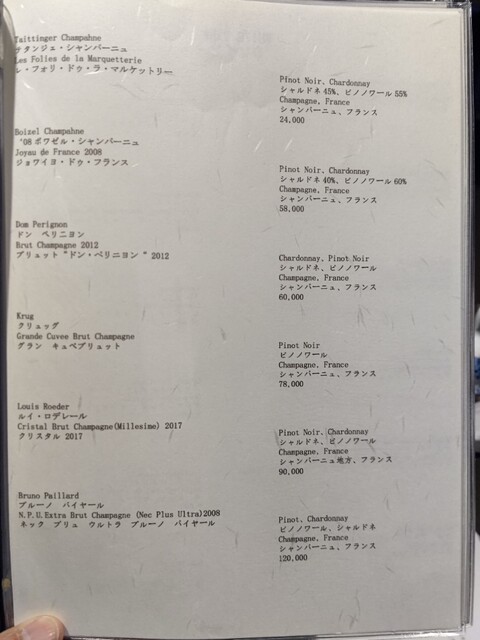 Taittinger Champahne
テタンジェ・シャンパーニュ
Les Folies de la Marquetterie
レ・フォリ・ドゥ・ラ・マルケットリー
Pinot Noir, Chardonnay
シャルドネ 45%, ピノノワール 55%
Champagne, France
シャンパーニュ、フランス
24,000
Boizel Champahne
'08 ボワゼル・シャンパーニュ
Joyau de France 2008
ジョワイヨ・ドゥ・フランス
Pinot Noir, Chardonnay
シャルドネ 40%, ピノノワール 60%
Champagne, France
シャンパーニュ、フランス
58,000
Dom Perignon
ドン ペリニヨン
Brut Champagne 2012
ブリュット "ドン・ペリニヨン " 2012
Chardonnay, Pinot Noir
シャルドネ、ピノノワール
Champagne, France
シャンパーニュ、フランス
60,000
Krug
クリュッグ
Grande Cuvee Brut Champagne
グラン キュベブリュット
Pinot Noir
ピノノワール
Champagne, France
シャンパーニュ、フランス
78,000
Louis Roeder
ルイ・ロデレール
Cristal Brut Champagne(Millesime) 2017
クリスタル 2017
Pinot Noir, Chardonnay
シャルドネ、ピノノワール
Champagne, France
シャンパーニュ地方、フランス
90,000
Bruno Paillard
ブルーノ パイヤール
N.P.U.Extra Brut Champagne (Nec Plus Ultra)2008
ネック プリュ ウルトラ ブルーノ パイヤール
Pinot, Chardonnay
ピノノワール、シャルドネ
Champagne, France
シャンパーニュ、フランス
120,000